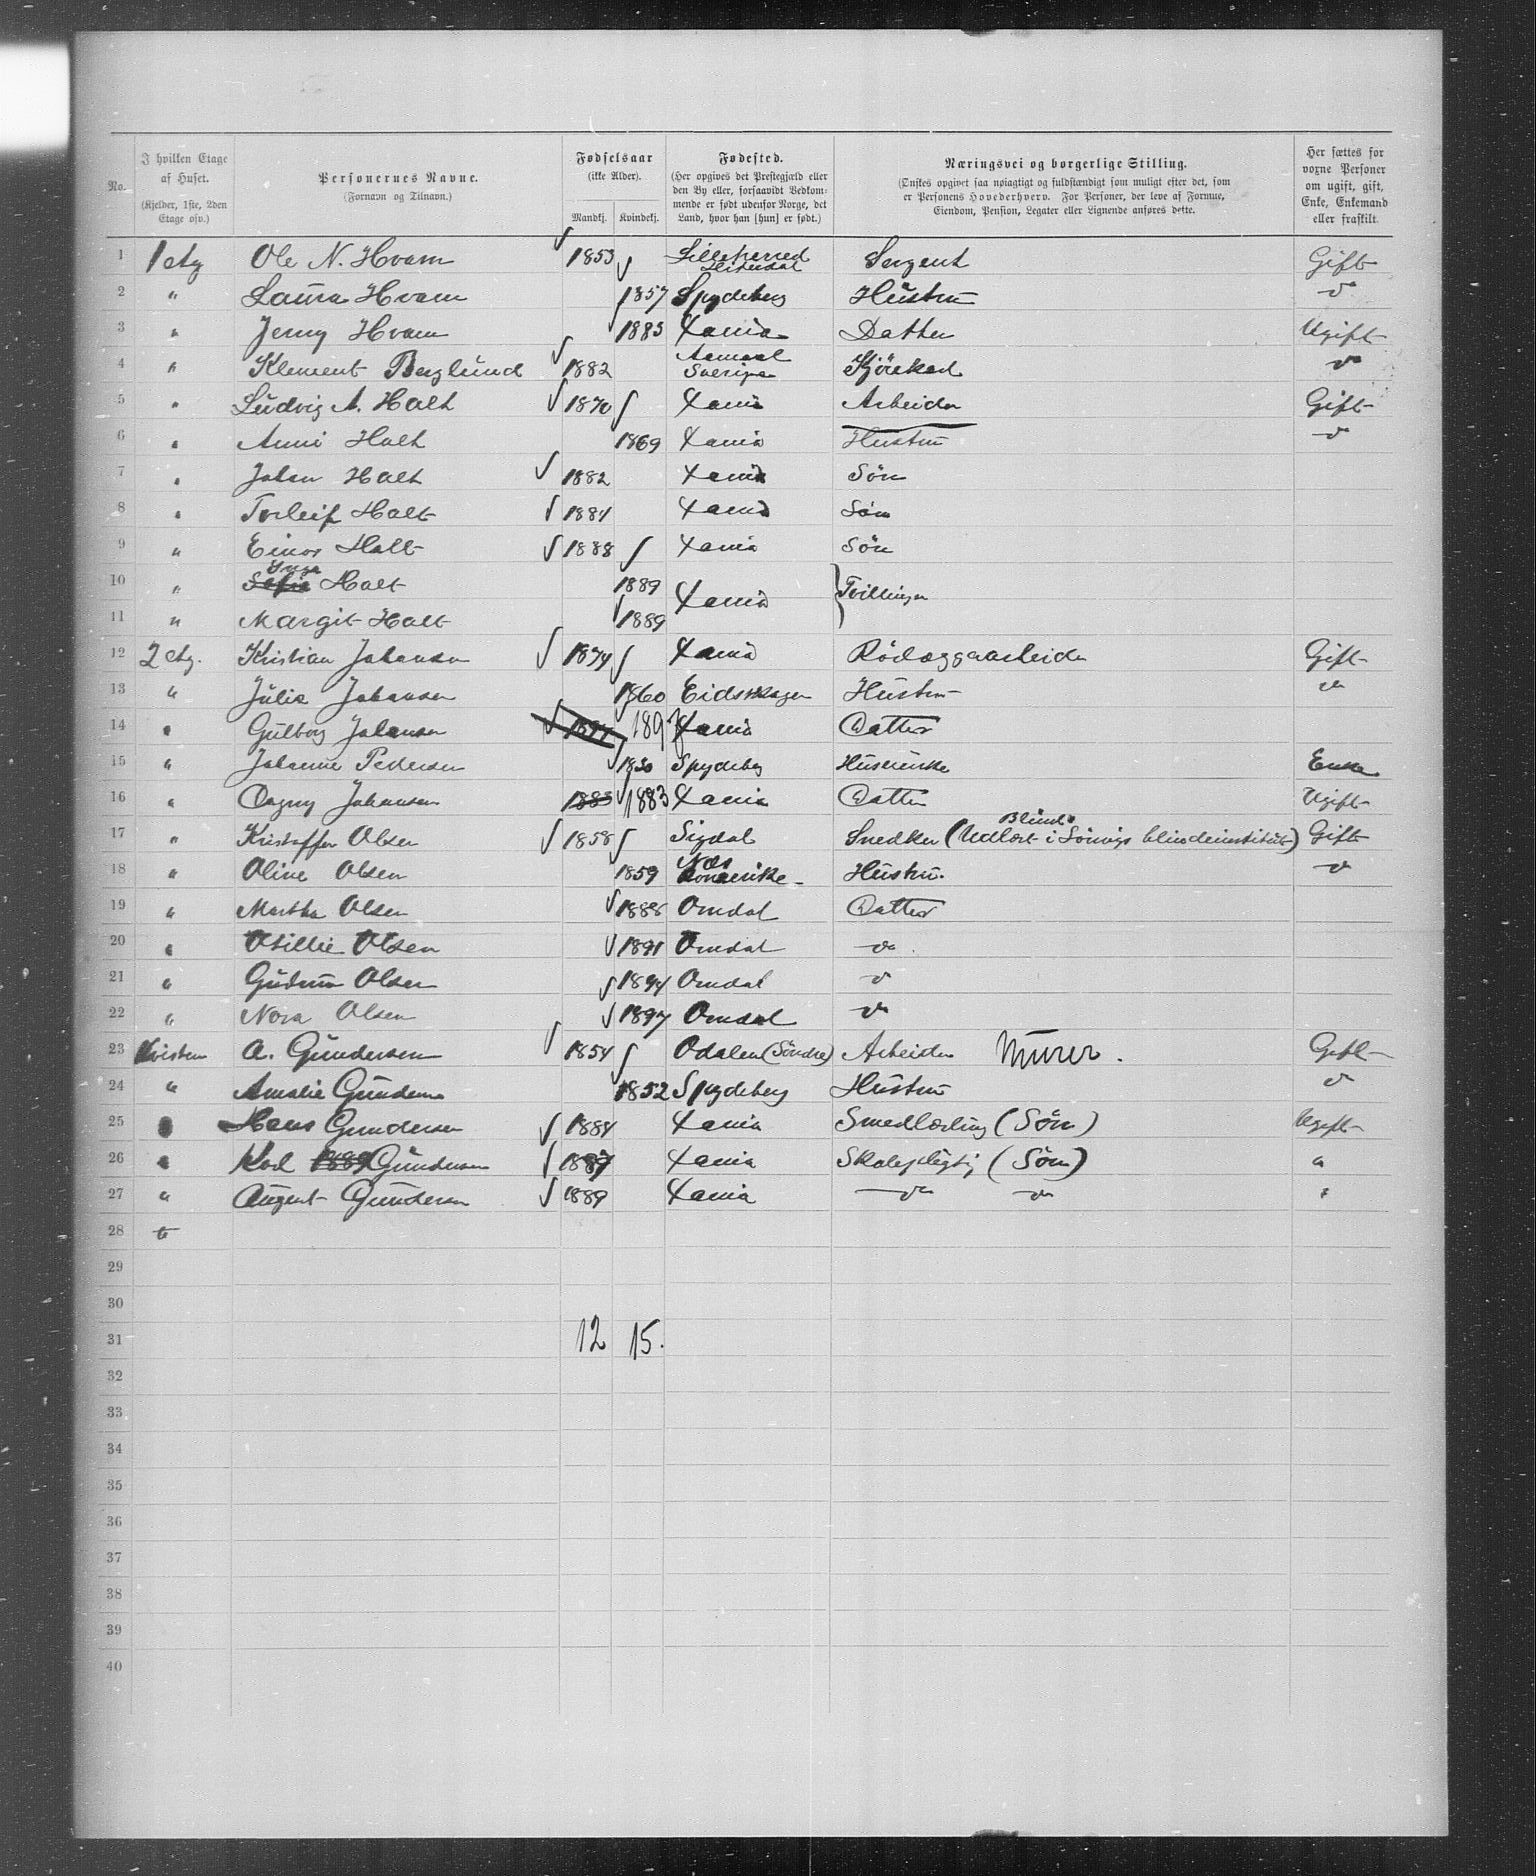 No.
I hvilken Etage af Huset. (Kjelder, 1ste, 2den Etage osv.)
Personernes Navne. (Fornavn og Tilnavn.)
Fødselsaar (ikke Alder). Mandkj. Kvindekj.
Fødested. (Her opgives det Prestegjæld eller den By eller, forsaavidt Vedkommende er født udenfor Norge, det Land, hvor han [hun] er født.)
Næringsvei og borgerlige Stilling. (Ønskes opgivet saa nøiagtigt og fuldstændigt som muligt efter det, som er Personens Hovederhverv. For Personer, der leve af Formue, Eiendom, Pension, Legater eller Lignende anføres dette.
Her sættes for voxne Personer om ugift, gift, Enke, Enkemand eller fraskilt.
1 1 etg Ole N. Hvam 1853 Lilleherred Sergent Gift
2 " Laura Hvam 1857 Spydeberg Hustru do
3 " Jenny Hvam 1883 Xania Datter Ugift
4 " Klement Berglund 1882 Aamaal Sverige Kjørekarl do
5 " Ludvig A. Halt 1870 Xania Arbeider Gift
6 " Anni Halt 1869 Xania Hustru do
7 " Johan Halt 1882 Xania Søn
8 " Torleif Halt 1884 Xania Søn
9 " Einar Halt 1888 Xania Søn
10 " Sofie Inga Halt 1889 Xania Tvillinger
11 " Margit Halt 1889
12 2 etg. Kristian Johansen 1874 Xania Gift
13 " Julie Johansen 1860 Eidskogen Hustru do
14 " Gulborg Johansen 1897 Xania Datter
15 " Johanne Pedersen 1830 Spydeberg Enke
16 " Dagny Johansen 1883 1883 Xania Datter Ugift
17 " Kristoffer Olsen 1858 Sigdal Snedker (Udlært i blindeinstitut) Blind Gift
18 " Oline Olsen 1859 Næs Romerike Hustru. do
19 " Martha Olsen 1888 Omdal Datter
20 " Otillie Olsen 1891 Omdal do
21 " Gudrun Olsen 1894 Omdal do
22 " Nora Olsen 1897 Omdal do
23 Kvisten A. Gundersen 1854 Odalen (Søndre) Arbeider Murer. Gift
24 " Amalie Gundersen 1852 Spydeberg Hustru do
25 " Hans Gundersen 1884 Xania Smedlærling (Søn) Ugift
26 " Karl Gundersen 1887 Xania Skolepligtig (Søn) "
27 " August Gundersen 1889 Xania do do "
28
29
30
31 12 15.
32
33
34
35
36
37
38
39
40